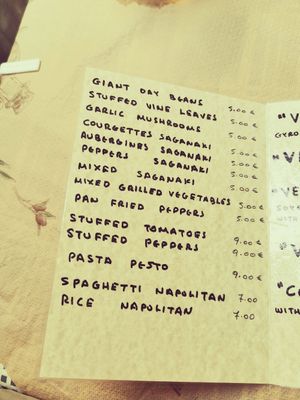 GIANT DAY BEANS 5.00 €
STUFFED VINE LEAVES 5.00 €
GARLIC MUSHROOMS 5.00 €
COURGETTES SAGANAKI 5.00 €
AUBERGINES SAGANAKI 5.00 €
PEPPERS SAGANAKI 5.00 €
MIXED SAGANAKI 5.00 €
MIXED GRILLED VEGETABLES 5.00 €
PAN FRIED PEPPERS 5.00 €
STUFFED TOMATOES 9.00 €
STUFFED PEPPERS 9.00 €
PASTA PESTO 9.00 €
SPAGHETTI NAPOLITAN 7.00
RICE NAPOLITAN 7.00
"V
GYRO
"VE
"VE
WITH
"V
"C
WITH